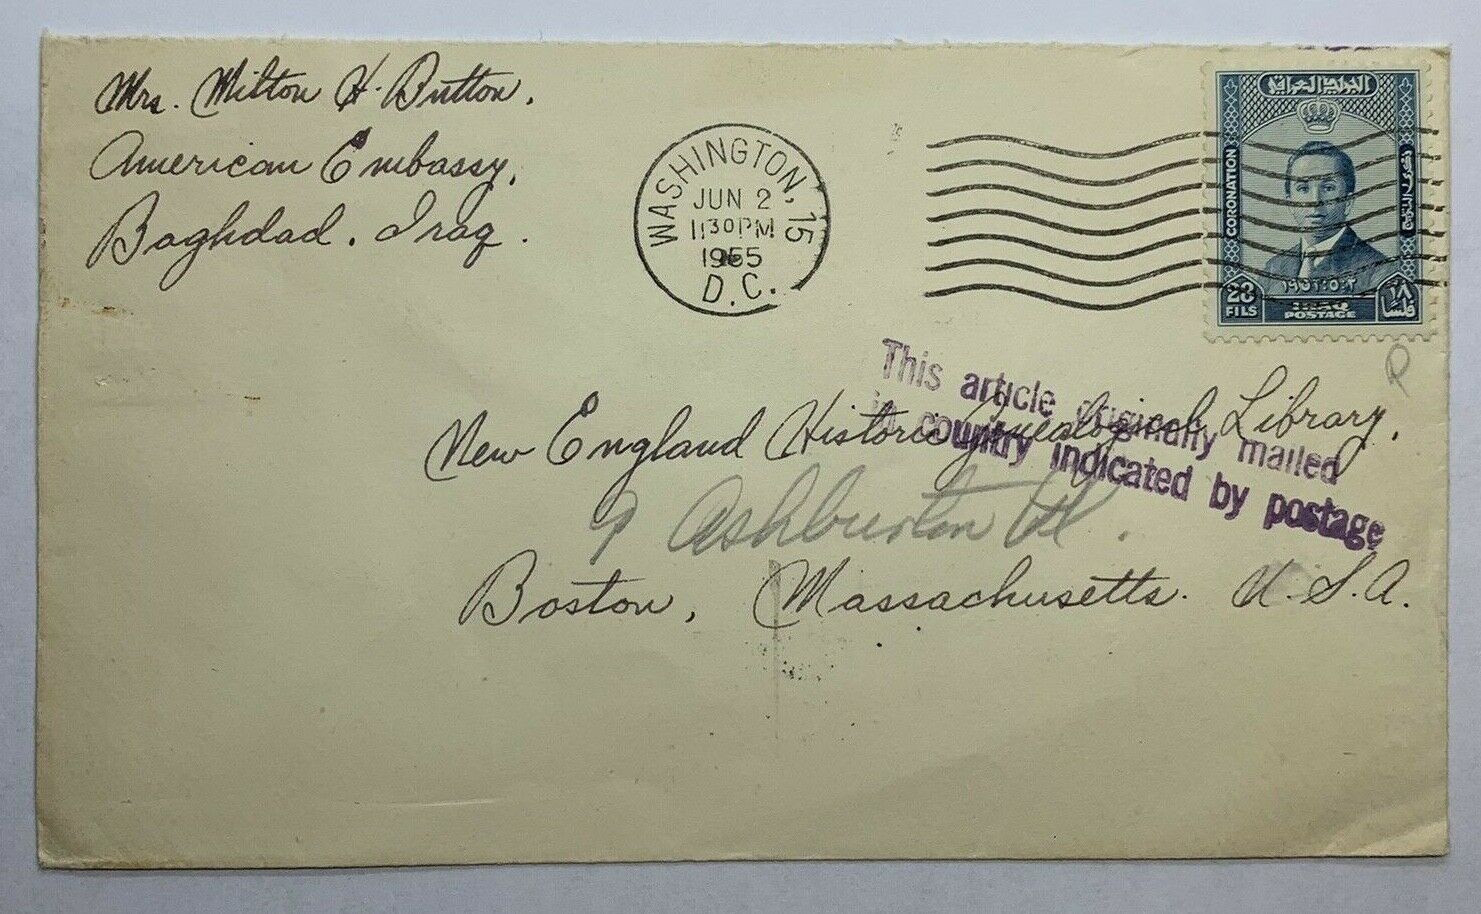 Mrs. Milton H. Button.
American Embassy.
Baghdad. Iraq.
WASHINGTON, 15
JUN 2
11 30 PM
1955
D.C.
CORONATION
28
FILS
٢٨
١٩٥٣٠٥٠٢
IRAQ
POSTAGE
This article originally mailed
in country indicated by postage
New England Historic Genealogical Library.
9 Ashburton Pl.
Boston, Massachusetts. U.S.A.